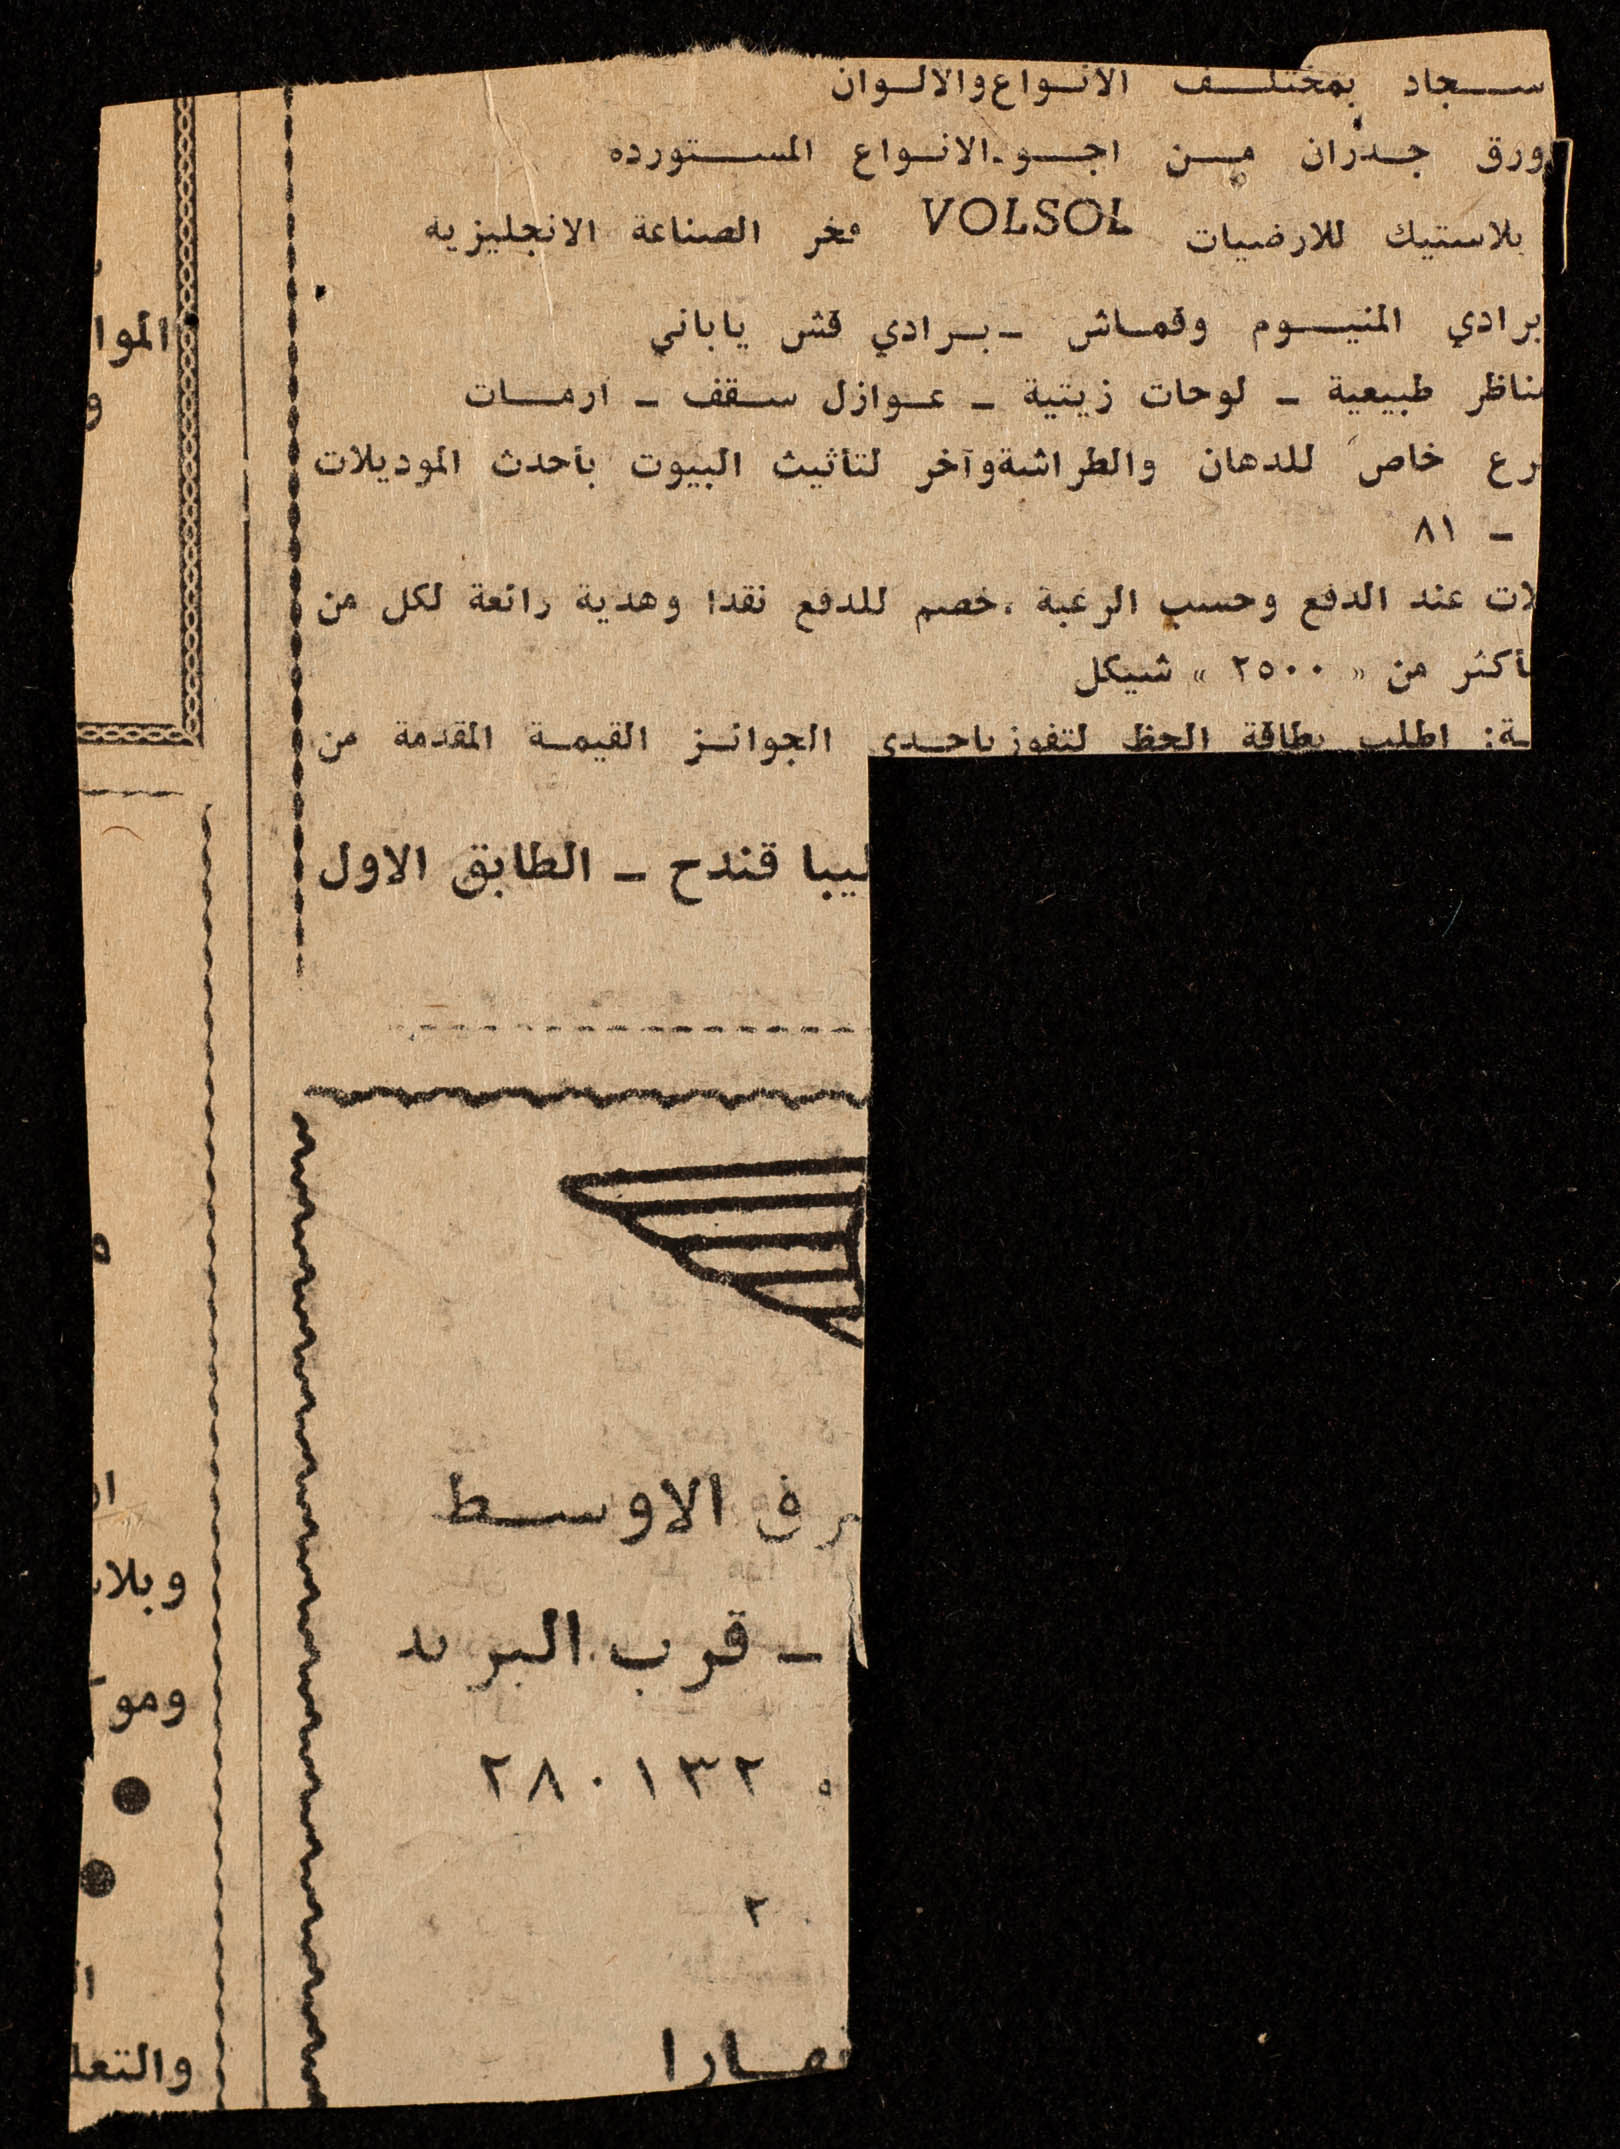 سجاد بمختلف الانواع والالوان
ورق جدران من اجو.الانواع المستورده
بلاستيك للارضيات VOLSOL فخر الصناعة الانجليزيه
برادي المنيوم وقماش - برادي قش ياباني
ناظر طبيعية - لوحات زيتية - عوازل سقف - ارمات
رع خاص للدهان والطراشة وآخر لتأثيث البيوت بأحدث الموديلات
- ٨١
لات عند الدفع وحسب الرغبة . خصم للدفع نقدا وهدية رائعة لكل من
أكثر من « ٢٥٠٠ » شيكل
ـة: اطلب بطاقة الحظ لتفوز باحدى الجوائز القيمة المقدمة من
ليبا قندح - الطابق الاول
رق الاوسط
- قرب البريد
٢٨٠١٣٢
٢
نهارا
الموا
و
ه
وبلا
ومو
والتعل